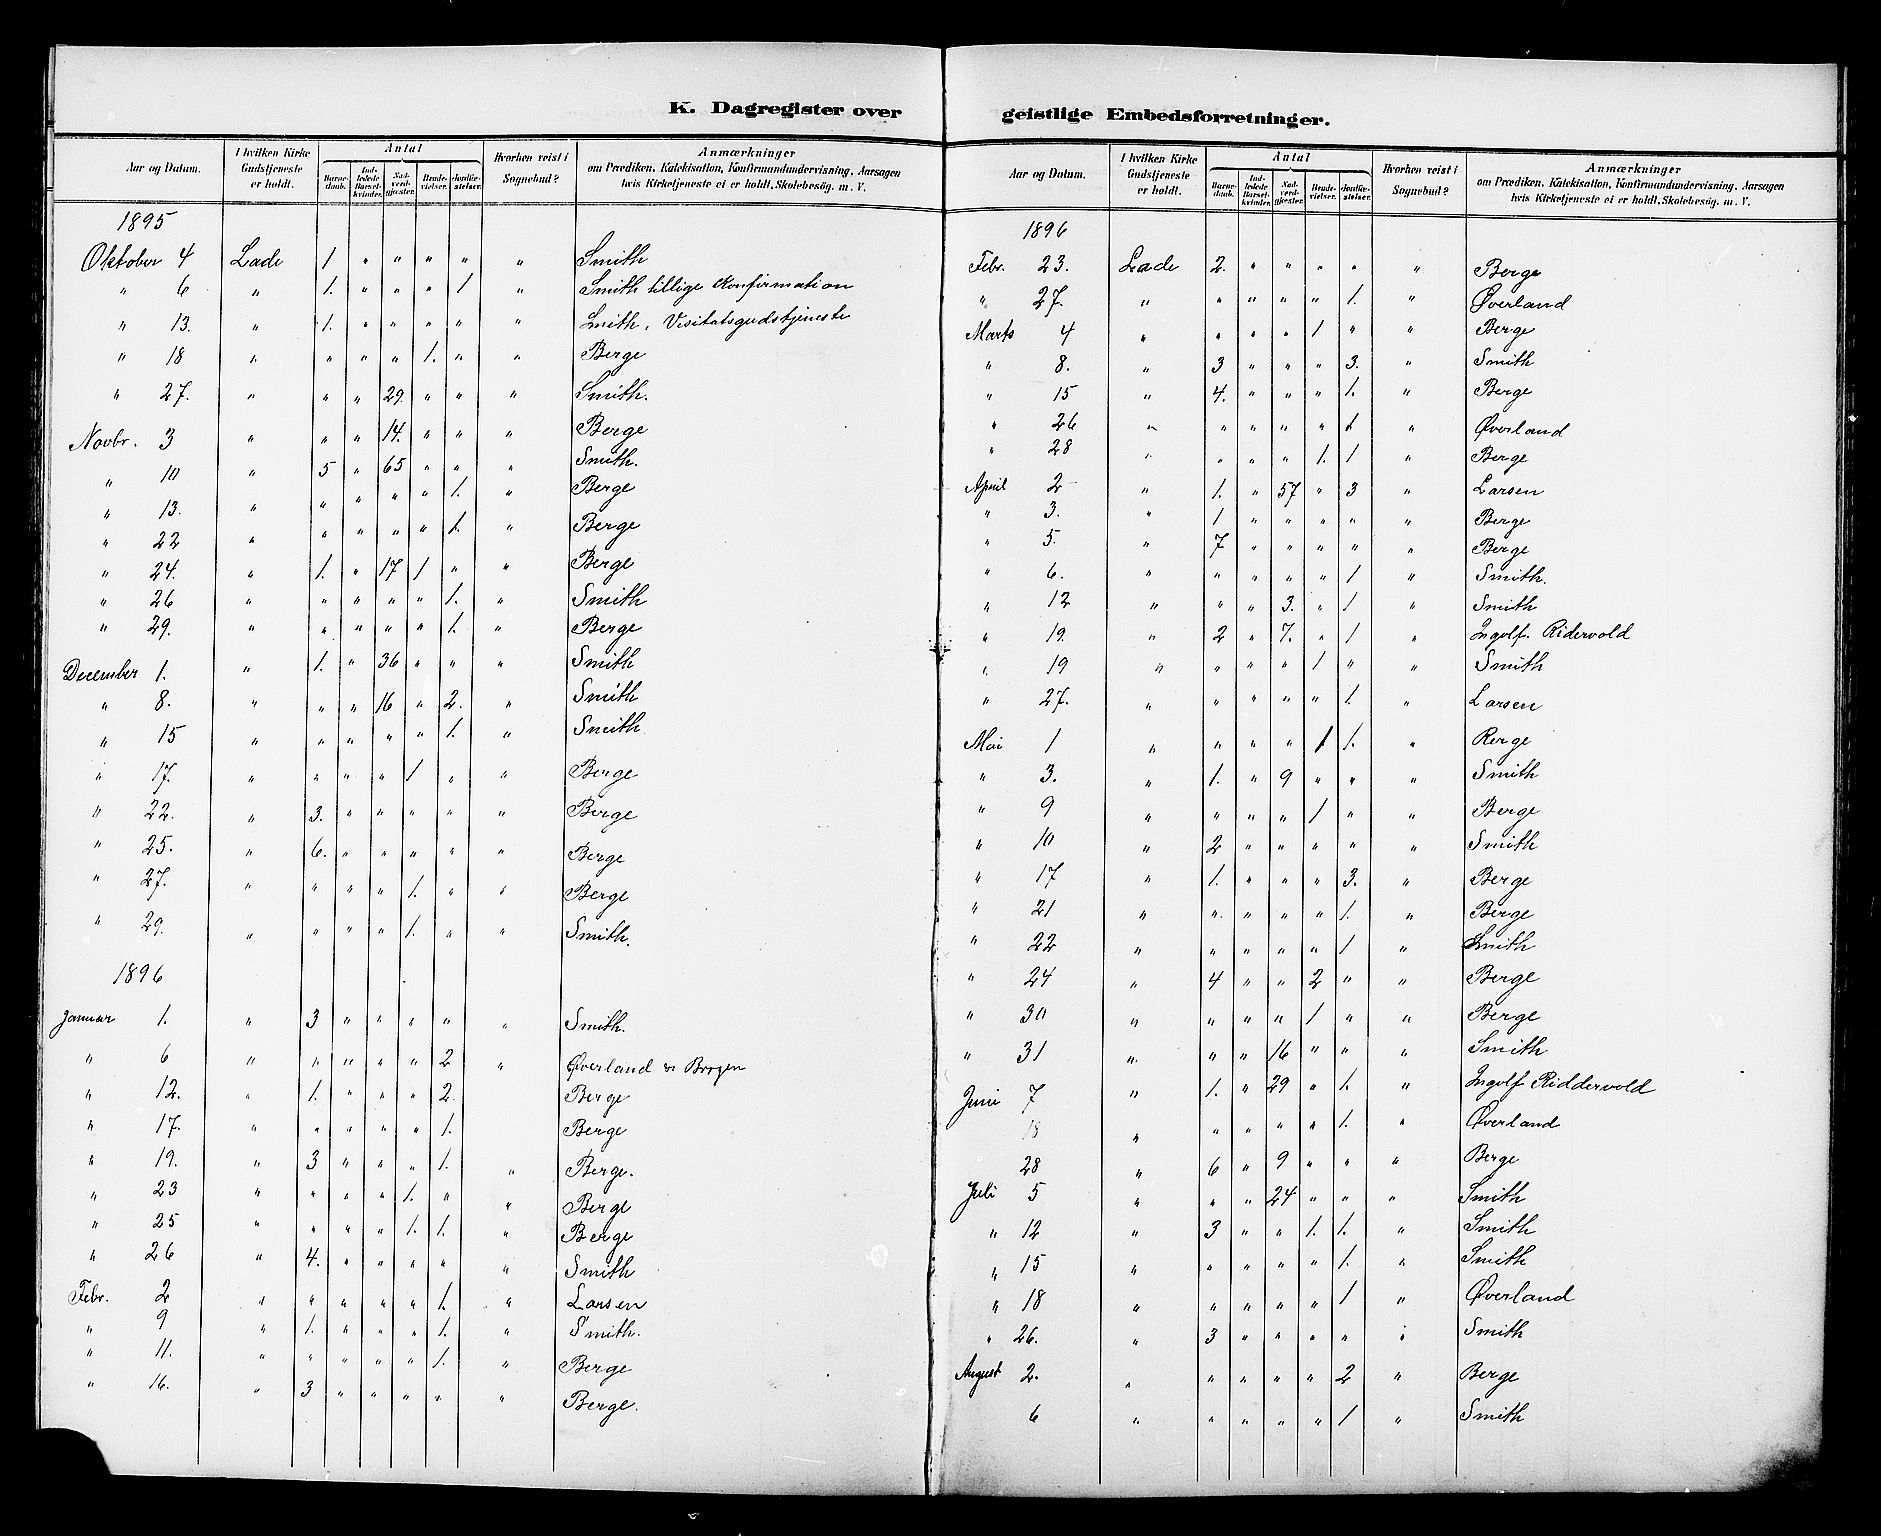 K. Dagregister over geistlige Embedsforretninger.
Aar og Datum. | I hvilken Kirke Gudstjeneste er holdt. | Antal | Barnedaab. | Indledede Barselkvinder. | Nadverdgjester. | Brudevielser. | Jordfæstelser. | Hvorhen reist i Sognebud? | Anmærkninger om Prædiken, Katekisation, Konfirmandundervisning, Aarsagen hvis Kirketjeneste ei er holdt, Skolebesøg. m. V.
1895
Oktober 4 Lade 1 " " " " " Smith
" 6 " 1. " " " 1 " Smith tillige Konfirmation
" 13. " 1. " " " " " Smith, Visitatsgudstjeneste
" 18 " " " " 1. " " Berge
" 27. " " " 29. " " " Smith.
Novbr. 3 " " " 14. " " " Berge
" 10 " 5 " 65 " " " Smith.
" 13. " " " " " 1. " Berge
" 22 " " " " " 1. " Berge
" 24. " 1. " 17 1 " " Berge
" 26 " " " " " 1. " Smith
" 29. " " " " " 1. " Berge
December 1. " 1. " 36 " " " Smith
" 8. " " " 16 " 2. " Smith
" 15 " " " " " 1. " Smith
" 17. " " " " 1 " " Berge
" 22. " 3. " " " " " Berge
" 25. " 6. " " " " " Berge
" 27. " " " " 1. " " Berge
" 29. " " " " 1. " " Smith.
1896
Januar 1. " 3 " " " " " Smith.
" 6 " " " " " 2 " Øverland
" 12. " 1. " " " 2. Berge
" 17. " " " " " 1. Berge
" 19. " 3 " " " 1. " Berge.
" 23 " " " " 1. " " Berge
" 25 " " " " 1. 1. " Berge
" 26 " 4. " " " " " Smith
Febr. 2 " " " " " 1. " Larsen
" 9 " 1. " " " 1. " Smith.
" 11. " " " " " 1. " Berge
" 16. " 3 " " " " " Berge.
Aar og Datum. | I hvilken Kirke Gudstjeneste er holdt. | Antal | Barnedaab. | Indledede Barselkvinder. | Nadverdgjester. | Brudevielser. | Jordfæstelser. | Hvorhen reist i Sognebud? | Anmærkninger om Prædiken, Katekisation, Konfirmandundervisning, Aarsagen hvis Kirketjeneste ei er holdt, Skolebesøg. m. V.
1896
Febr. 23. Lade 2. " " " " " Berge
" 27. " " " " " 1. " Øverland
Marts 4 " " " " 1 " " Berge
" 8. " 3 " " " 3. " Smith
" 15 " 4. " " " 1. " Berge
" 26 " " " " " 1 " Øverland
" 28 " " " " 1. 1 " Berge
April 2 " 1. " 57 " 3 " Larsen
" 3. " 1 " " " " " Berge
" 5. " 7 " " " " " Berge
" 6. " " " " " 1 " Smith.
" 12 " " " 3. " 1 " Smith
" 19. " 2 " 7. " 1 " Ingolf. Ridervold
" 19 " " " " 1 " " Smith
" 27. " " " " " 1. " Larsen
Mai 1 " " " " 1 1. " Berge
" 3. " 1. " 9 " " " Smith
" 9 " " " " 1 " " Berge
" 10 " 2 " " " " " Smith
" 17 " 1. " " " 3. " Berge
" 21 " " " " " 1. " Berge
" 22 " " " " " 1 " Smith
" 24 " 4 " " 2 " " Berge
" 30 " " " " 1 " " Berge
" 31 " " " 16 " " " Smith
Juni 7 " 1. " 29 " 1. " Ingolf Riddervold
18 " " " " " 1. " Øverland
28 " 6 " 9 " " " Berge
Juli 5 " " " 24 " " " Smith
" 12 " 3 " " 1. 1. " Smith
" 15 " " " " " 1. " Smith
" 18 " " " " " 1 " Øverland
" 26. " 3 " " " " " Smith
August 2. " " " " " 2 " Berge
6 " " " " " 1 " Smith